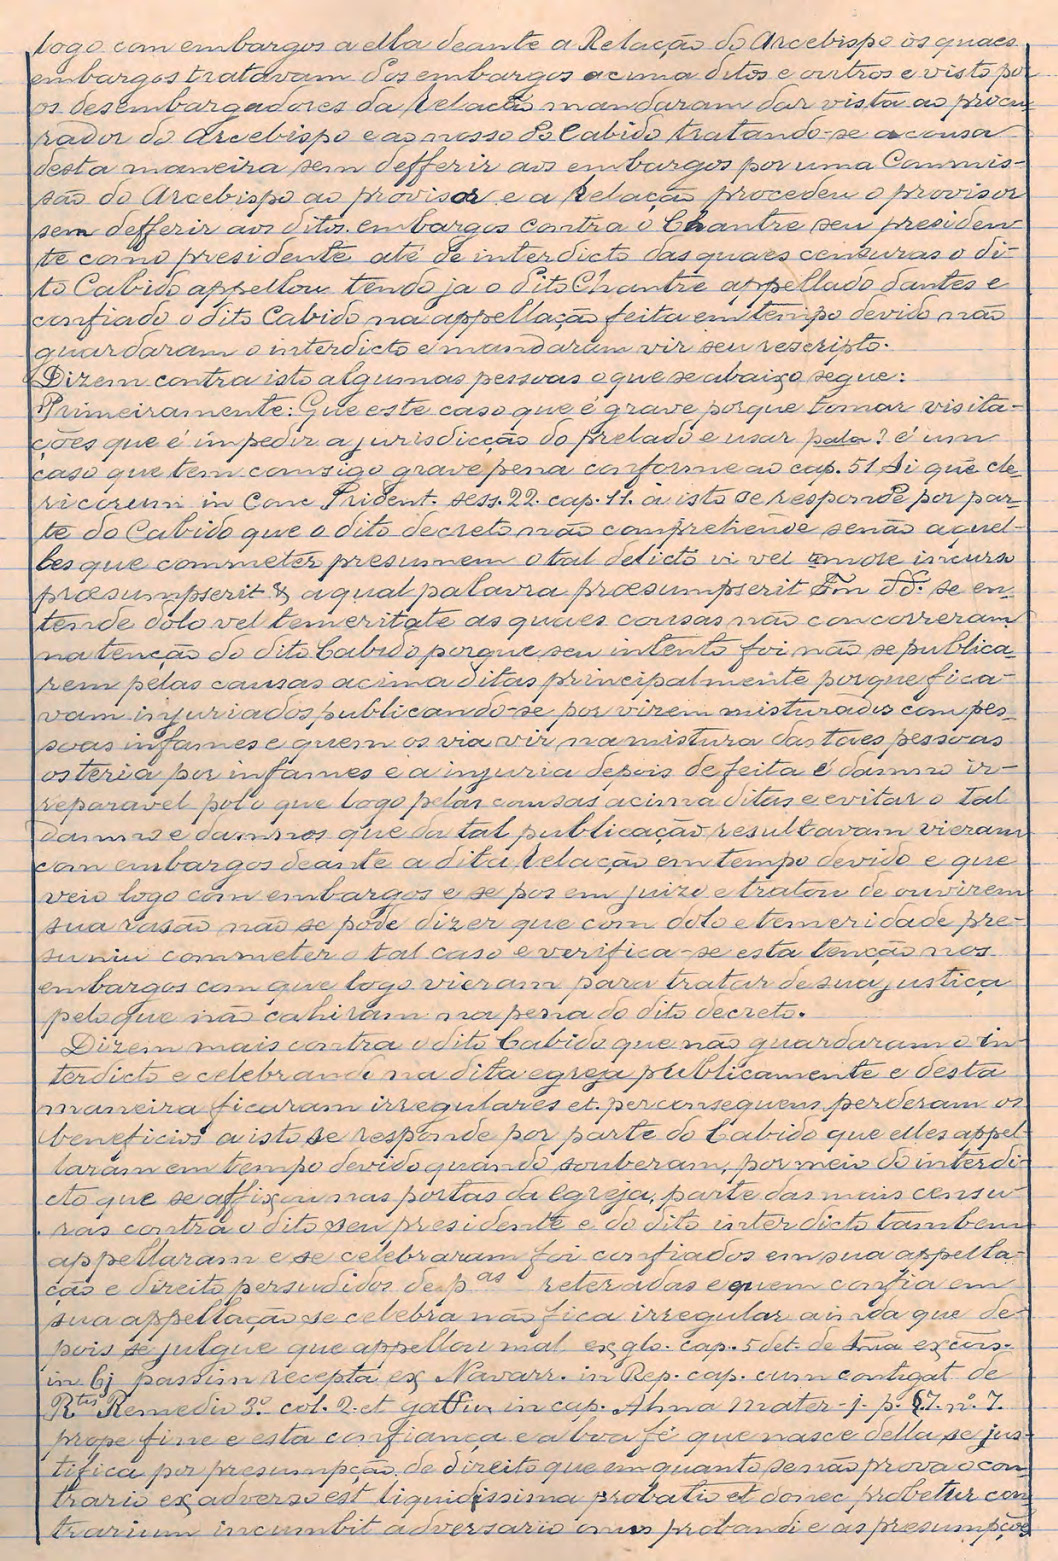 logo com embargos a ella deante a Relação do Arcebispo os quaes
embargos tratavam dos embargos acima ditos e outros e visto por
os desembargadores da Relação mandaram dar vista ao procu-
rador do Arcebispo e ao nosso do Cabido tratando-se a cousa
desta maneira sem defferir aos embargos por uma Commis-
são do Arcebispo ao provisor e a Relação procedeu o provisor
sem defferir aos ditos embargos contra o Chantre seu presiden-
te como presidente até de interdicto das quaes censuras o di-
to Cabido appellou tendo ja o dito Chantre appellado dantes e
confiado o dito Cabido na appellação feita em tempo devido não
guardaram o interdicto e mandaram vir seu rescripto.
Dizem contra isto algumas pessoas o que se abaixo segue:
Primeiramente: Que este caso que é grave porque tomar visita-
ções que é impedir a jurisdicção do prelado e usar pala? é um
caso que tem comsigo grave pena conforme ao cap. 51 Si quê cle-
ricorum in Conc Trident. sess. 22. cap. 11. a isto se responde por par-
te do Cabido que o dito decreto não comprehende senão aquel-
les que commeter presumem o tal delicto vi vel timore incurso
præsumpserit & a qual palavra præsumpserit Fm dd. se en-
tende dolo vel temeritate as quaes cousas não concorreram
na tenção do dito Cabido porque seu intento foi não se publica-
rem pelas causas acima ditas principalmente porque fica-
vam injuriados publicando-se por virem misturados com pes-
soas infames e quem os via vir na mistura das taes pessoas
os teria por infames e a injuria depois de feita é damno ir-
reparavel polo que logo pelas causas acima ditas e evitar o tal
damno e damnos que da tal publicação resultavam vieram
com embargos deante a dita Relação em tempo devido e que
veio logo com embargos e se pos em juizo e tratou de ouvirem
sua rasão não se póde dizer que com dolo e temeridade pre-
sumiu commeter o tal caso e verifica-se esta tenção nos
embargos com que logo vieram para tratar de sua justiça
pelo que não cahiram na pena do dito decreto.
Dizem mais contra o dito Cabido que não guardaram o in-
terdicto e celebrando na dita egreja publicamente e desta
maneira ficaram irregulares et. per consequens perderam os
beneficios a isto se responde por parte do Cabido que elles appel-
laram em tempo devido quando souberam, por meio do interdi-
cto que se affixou nas portas da Egreja, parte das mais censu-
ras contra o dito seu presidente e do dito interdicto tambem
appellaram e se celebraram foi confiados em sua appella-
ção e direito persudidos de pas reteradas e quem confia em
sua appellação se celebra não fica irregular ainda que de-
pois se julgue que appellou mal ex glo. cap. 5 det. de Snia excõis.
in 6j passim recepta ex Navarr. in Rep. cap. cum contigat de
Rtis Remedio 3º col. 2. et gatfu in cap. Alma Mater - j. p. §. 7. nº 7.
prope fine e esta confiança e a boa fé que nasce della se jus-
tifica por presumpção de direito que emquanto se não prova o con-
trario ex adverso est liquidissima probatio et donec probetur con-
trarium incumbit adversario onus probandi e as presumpções